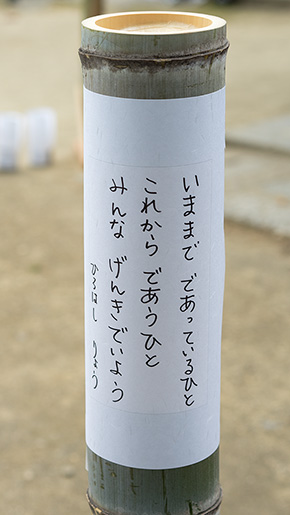 いままで であっているひと
これから であうひと
みんな げんきでいよう
ひろはし りょう